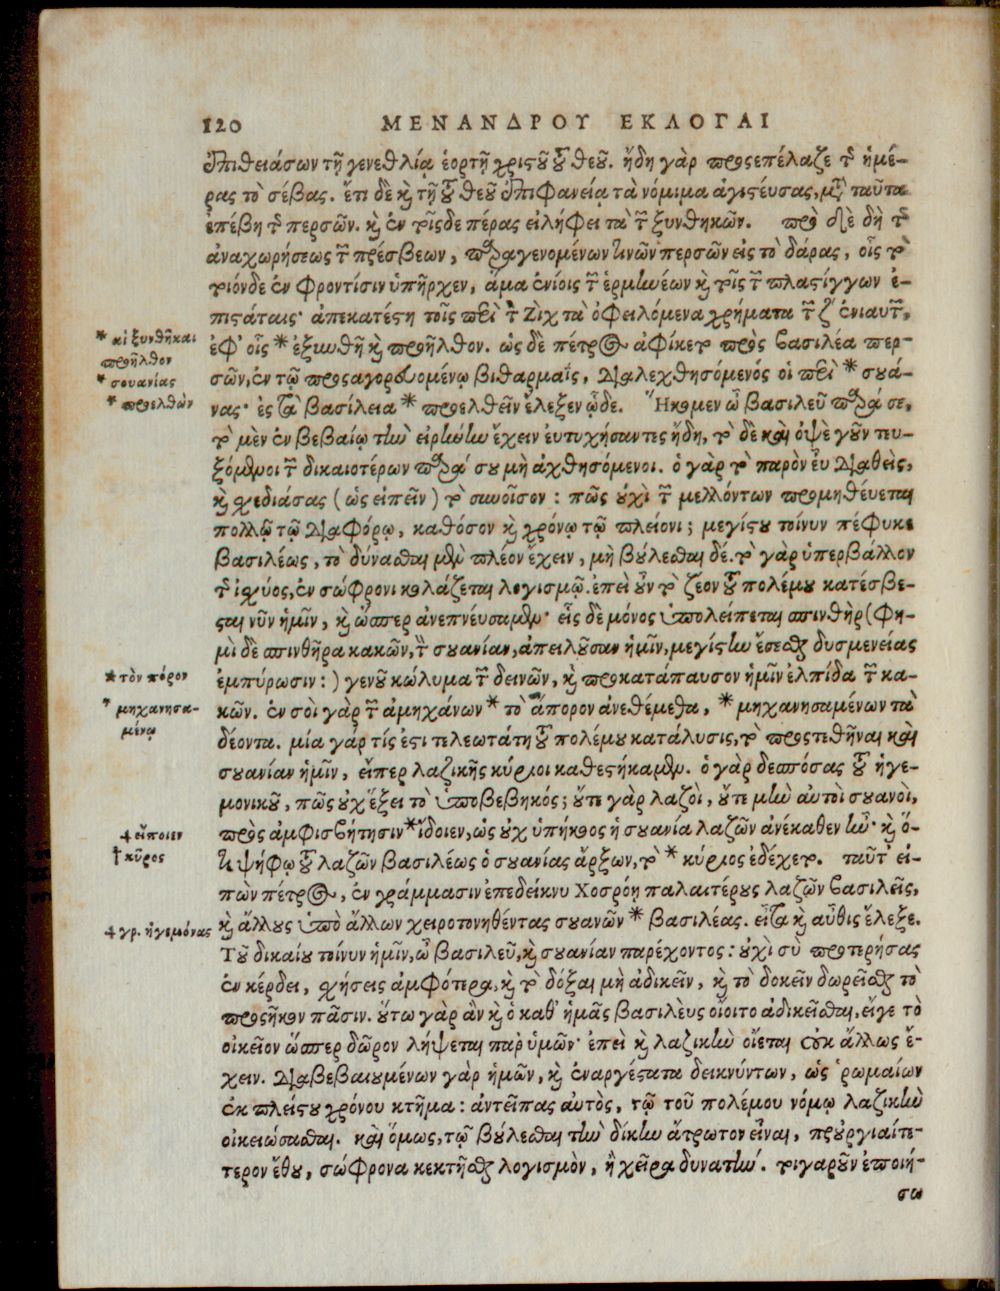 120 ΜΕΝΑΝΔΡΟΥ ΕΚΛΟΓΑΙ
ἐπιθειάσων τῇ γενεθλίᾳ ἑορτῇ χριστοῦ τοῦ θεοῦ. ἤδη γὰρ προςεπέλαζε τῆς ἡμέ-
ρας τὸ σέβας. ἔτι δὲ καὶ τῇ τοῦ θεοῦ ἐπιφανείᾳ τὰ νόμιμα ἁγιστεύσας, μετὰ ταῦτα
ἐπέβη τῆς περσῶν. καὶ ἐν τοῖςδε πέρας εἰλήφει τὰ τῶν ξυνθηκῶν. πρὸ δὲ δὴ τῆς
ἀναχωρήσεως τῶν πρέσβεων, παραγενομένων τινῶν περσῶν εἰς τὸ δάρας, οἷς τὸ
τοιόνδε ἐν φροντίσιν ὑπῆρχεν, ἅμα ἐνίοις τῶν ἑρμηνέων καὶ τοῖς τῶν πλαστίγγων ἐ-
πιστάταις· ἀπεκατέστη τοῖς περὶ τὸν Ζὶχ τὰ ὀφειλόμενα χρήματα τῶν ζ΄ ἐνιαυτῶν,
ἐφ' οἷς * ἐξυνέθη καὶ προῆλθον. ὡς δὲ πέτρος ἀφίκετο πρὸς βασιλέα περ-
σῶν, ἐν τῷ προςαγορευομένῳ βιθαρμαῒς, διαλεχθησόμενός οἱ περὶ * σουά-
νας· ἐς τὰ βασίλεια * προελθεῖν ἔλεξεν ᾧδε. Ἥκομεν ὦ βασιλεῦ παρά σε,
τὸ μὲν ἐν βεβαίῳ τὴν εἰρήνην ἔχειν εὐτυχήσαντες ἤδη, τὸ δὲ καὶ ὀψὲ γοῦν τευ-
ξόμενοι τῶν δικαιοτέρων παρά σου μὴ ἀχθησόμενοι. ὁ γὰρ τὸ παρὸν εὖ διαθεὶς,
καὶ σχεδιάσας (ὡς εἰπεῖν) τὸ συνοῖσον : πῶς οὐχὶ τῶν μελλόντων προμηθεύεται
πολλῷ τῷ διαφόρῳ, καθόσον καὶ χρόνῳ τῷ πλείονι; μεγίστου τοίνυν πέφυκε
βασιλέως, τὸ δύνασθαι μὲν πλέον ἔχειν, μὴ βούλεσθαι δέ. τὸ γὰρ ὑπερβάλλον
τῆς ἰσχύος, ἐν σώφρονι κολάζεται λογισμῷ. ἐπεὶ οὖν τὸ ζέον τοῦ πολέμου κατέσβε-
σται νῦν ἡμῖν, καὶ ὥσπερ ἀνεπνεύσαμεν· εἷς δὲ μόνος ὑπολείπεται σπινθὴρ (φη-
μὶ δὲ σπινθῆρα κακῶν, τὴν σουανίαν, ἀπειλοῦσαν ἡμῖν, μεγίστην ἔσεσθαι δυσμενείας
ἐμπύρωσιν :) γενοῦ κώλυμα τῶν δεινῶν, καὶ προκατάπαυσον ἡμῖν ἐλπίδα τῶν κα-
κῶν. ἐν σοὶ γὰρ τῶν ἀμηχάνων * τὸ ἄπορον ἀνεθέμεθα, * μηχανησαμένων τὰ
δέοντα. μία γάρ τίς ἐστι τελεωτάτη τοῦ πολέμου κατάλυσις, τὸ προςτεθῆναι καὶ
σουανίαν ἡμῖν, εἴπερ λαζικῆς κύριοι καθεστήκαμεν. ὁ γὰρ δεσπόσας τοῦ ἡγε-
μονικοῦ, πῶς οὐχ ἕξει τὸ ὑποβεβηκός; οὔτε γὰρ λαζοὶ, οὔτε μὴν αὐτοὶ σουανοὶ,
πρὸς ἀμφισβήτησιν * ἴδοιεν, ὡς οὐχ ὑπήκοος ἡ σουανία λαζῶν ἀνέκαθεν ἦν· καὶ ὅ-
τι ψήφῳ τοῦ λαζῶν βασιλέως ὁ σουανίας ἄρξων, τὸ * κύριος ἐδέχετο. ταῦτ' εἰ-
πὼν πέτρος, ἐν γράμμασιν ἐπεδείκνυ Χοσρόῃ παλαιτέρους λαζῶν βασιλεῖς,
καὶ ἄλλους ὑπὸ ἄλλων χειροτονηθέντας σουανῶν * βασιλέας. εἶτα καὶ αὖθις ἔλεξε.
Τοῦ δικαίου τοίνυν ἡμῖν, ὦ βασιλεῦ, καὶ σουανίαν παρέχοντος : οὐχὶ σὺ προτερήσας
ἐν κέρδει, σχήσεις ἀμφότερα, καὶ τὸ δόξαι μὴ ἀδικεῖν, καὶ τὸ δοκεῖν δωρεῖσθαι τὸ
προςῆκον πᾶσιν. οὕτω γὰρ ἂν καὶ ὁ καθ' ἡμᾶς βασιλεὺς οἴοιτο ἀδικεῖσθαι, εἴγε τὸ
οἰκεῖον ὥσπερ δῶρον λήψεται παρ' ὑμῶν· ἐπεὶ καὶ λαζικὴν οἴεται οὐκ ἄλλως ἔ-
χειν. διαβεβαιουμένων γὰρ ἡμῶν, καὶ ἐναργέστατα δεικνύντων, ὡς ῥωμαίων
ἐκ πλείστου χρόνου κτῆμα : ἀντεῖπας αὐτὸς, τῷ τοῦ πολέμου νόμῳ λαζικὴν
οἰκειώσασθαι. καὶ ὅμως, τῷ βούλεσθαι τὴν δίκην ἄτρωτον εἶναι, προὐργιαίτε-
τερον ἔθου, σώφρονα κεκτῆσθαι λογισμὸν, ἢ χεῖρα δυνατήν. τοιγαροῦν ἐποιή-
σω
* αἱ ξυνθῆκαι
προῆλθον
* σουανίας
* προελθὼν
* τὸν πόρον
* μηχανησα-
μένῳ
+ εἴποιεν
† κῦρος
+ γρ. ἡγεμόνας